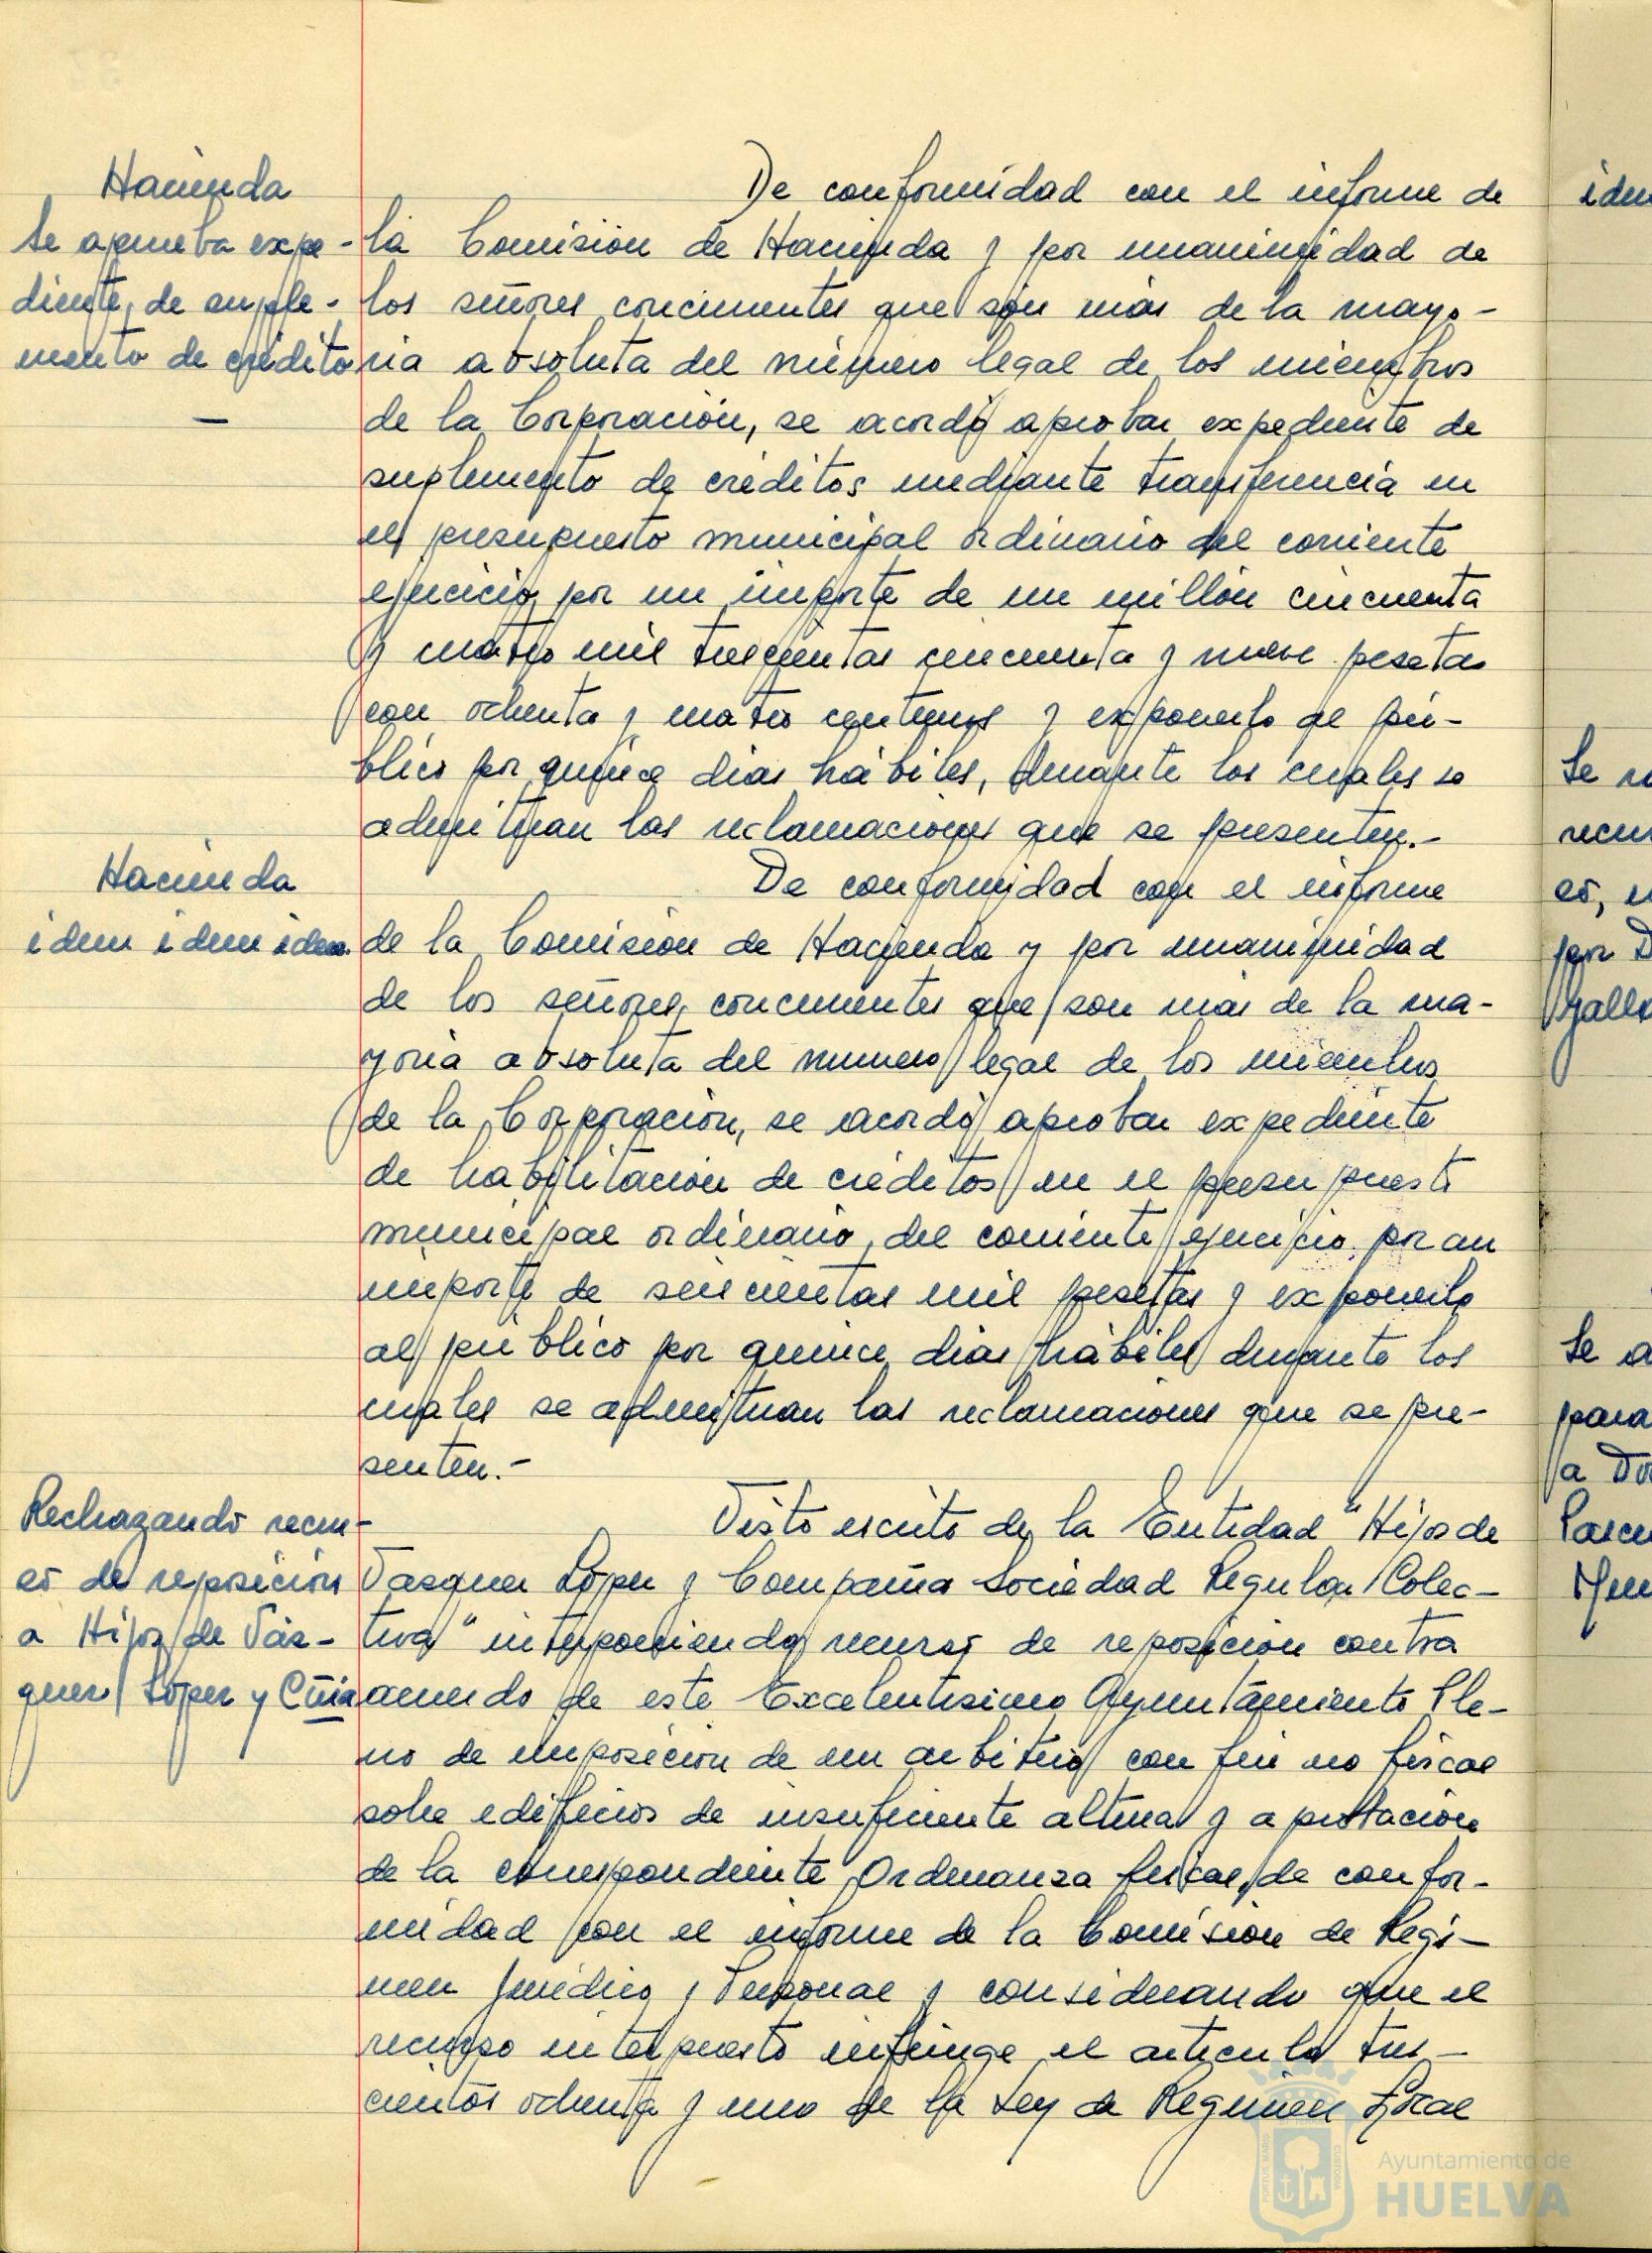 Hacienda
Se aprueba expe-
diente de suple-
mento de crédito
—
De conformidad con el informe de
la Comisión de Hacienda y por unanimidad de
los señores concurrentes que son más de la mayo-
ria absoluta del número legal de los miembros
de la Corporación, se acordó aprobar expediente de
suplemento de créditos mediante transferencia en
el presupuesto municipal ordinario del corriente
ejercicio por un importe de un millón cincuenta
y cuatro mil trescientas cincuenta y nueve pesetas
con ochenta y cuatro centimos y exponerlo al pú-
blico por quince dias hábiles, durante los cuales se
admitiran las reclamaciones que se presenten.-
Hacienda
idem idem idem.
De conformidad con el informe
de la Comisión de Hacienda y por unanimidad
de los señores concurrentes que son más de la ma-
yoria absoluta del numero legal de los miembros
de la Corporación, se acordó aprobar expediente
de habilitación de créditos en el presupuesto
municipal ordinario del corriente ejercicio por un
importe de seiscientas mil pesetas y exponerlo
al público por quince dias hábiles durante los
cuales se admitiran las reclamaciones que se pre-
senten.-
Rechazando recur-
so de reposición
a Hijos de Vás-
quez López y Cñia
Visto escrito de la Entidad "Hijos de
Vasquez López y Compañia Sociedad Regular Colec-
tiva" interponiendo recurso de reposición contra
acuerdo de este Excelentisimo Ayuntamiento Ple-
no de imposición de un arbitrio con fin no fiscal
sobre edificios de insuficiente altura y aprobación
de la correspondiente Ordenanza fiscal, de confor-
midad con el informe de la Comisión de Regi-
men Juridico y Personal y considerando que el
recurso interpuesto infringe el articulo tres-
cientos ochenta y uno de la Ley de Regimen Local
idem
Se
por D
Se a
para
a
Ayuntamiento de
HUELVA